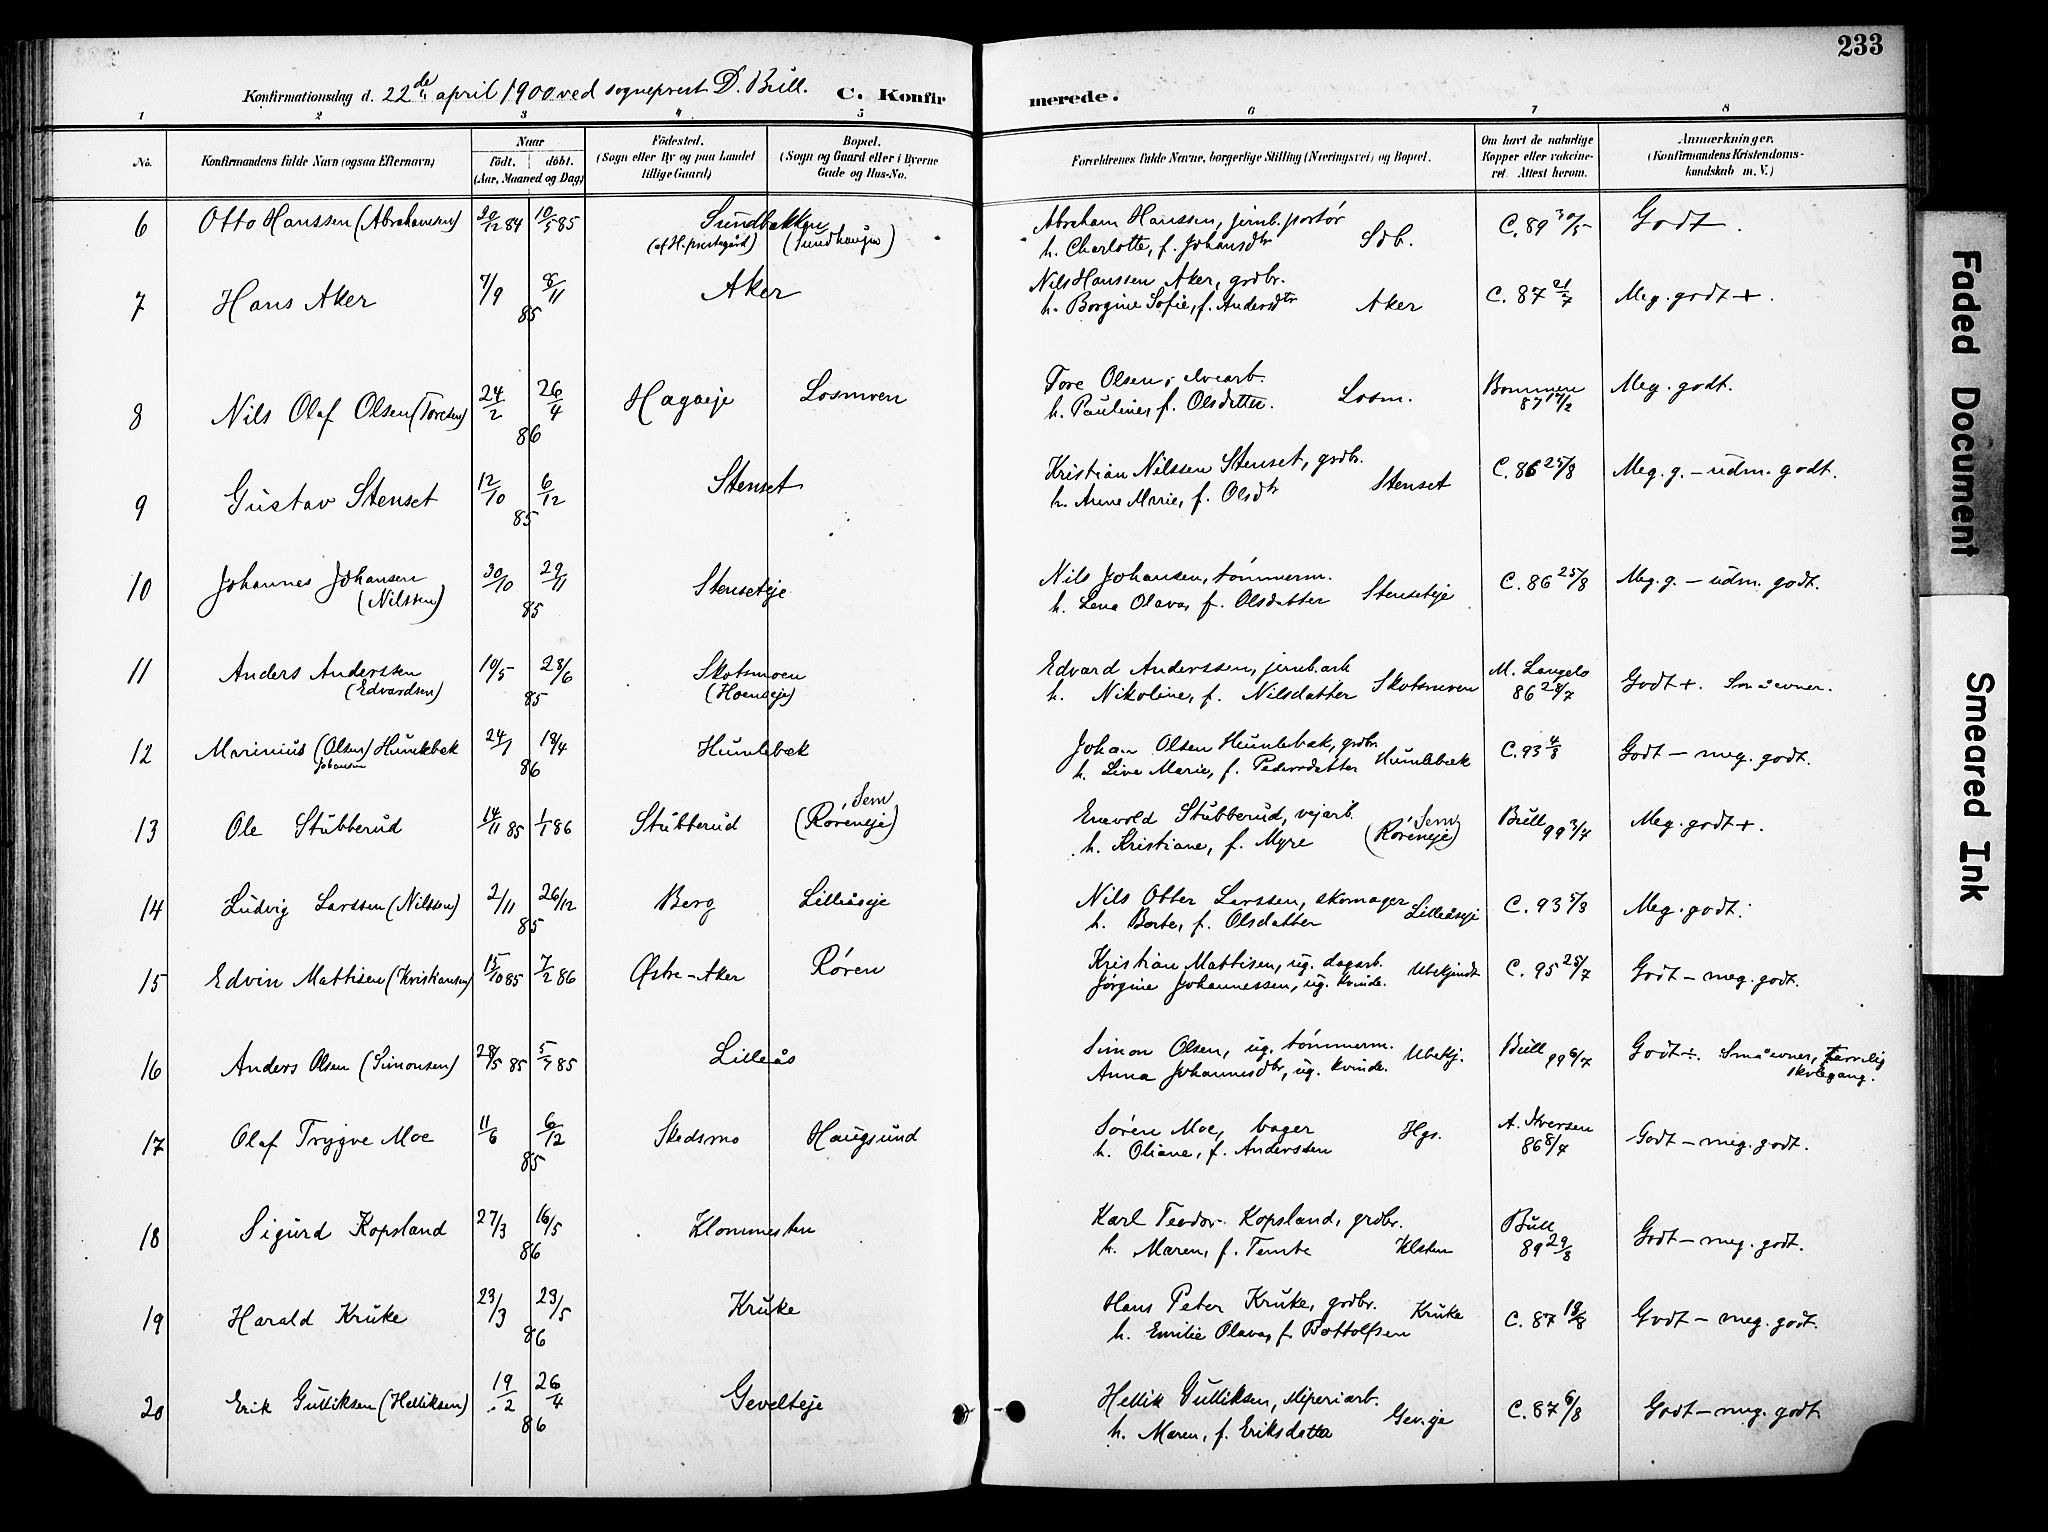 233
Konfirmationsdag d. 22de april 1900 ved sogneprest D. Bull. C. Konfirmerede.
1 2 3 4 5 6 7 8
No.
Konfirmandens fulde Navn (ogsaa Efternavn)
Naar
födt. döbt.
(Aar, Maaned og Dag)
Födested.
(Sogn eller By og paa Landet
tillige Gaard)
Bopæl.
(Sogn og Gaard eller i Byerne
Gade og Hus-No.
Forældrenes fulde Navne, borgerlige Stilling (Næringsvei) og Bopæl.
Om havt de naturlige
Kopper eller vakcine-
ret. Attest herom.
Anmærkninger.
(Konfirmandens Kristendoms-
kundskab m. V.)
6 Otto Hanssen (Abrahamsen) 30/12 84 10/5 85 Sundbakken Abraham Hanssen, jernb. portör C. 89 30/5 Godt.
h. Charlotte, f. Johansdtr Sdb.
7 Hans Aker 7/9 8/11 85 Aker Nils Hanssen Aker, grdbr. C. 87 21/7 Meg. godt +.
h. Borgine Sofie, f. Andersdtr Aker
8 Nils Olaf Olsen (Toresen) 24/2 26/4 86 Hagaeje Losmoen Tore Olsen, elvearb. Losm. Bommen 87 Meg. godt.
h. Pauline, f. Olsdatter.
9 Gustav Stenset 12/10 6/12 85 Stenset Kristian Nilssen Stenset, grdbr. C. 86 25/8 Meg. g. – udm. godt.
h. Anne Marie, f. Olsdtr Stenset
10 Johannes Johansen 30/10 29/11 85 Stenseteje Nils Johansen, tömmerm. C. 86 25/8 Meg. g. – udm. godt.
(Nilssen) h. Lena Olava, f. Olsdatter Stenseteje
11 Anders Anderssen 10/5 28/6 85 Skotsmoen Edvard Anderssen, jernb.arb M. Langelo Godt +. Småevner.
(Edvardsen) (Hoenseje) h. Nikoline, f. Nilsdatter Skotsmoen 86 28/7
12 Marinius (Olsen) Humlebæk 24/1 18/4 86 Humlebæk Johan Olsen Humlebæk, grdbr. C. 93 4/8 Godt – meg. godt.
Johansen h. Live Marie, f. Pedersdatter Humlebæk
13 Ole Stubberud 14/11 85 1/1 86 Stubberud Sem (Röreneje) Enevold Stubberud, vejarb. Sem Bull 99 3/7 Meg. godt +.
h. Kristiane, f. Myre (Röreneje)
14 Ludvig Larssen (Nilssen) 2/11 26/12 85 Berg Lilleåseje Nils Otter Larssen, skomager C. 93 5/8 Meg. godt.
h. Berte, f. Olsdatter Lilleåseje
15 Edvin Mattisen (Kristiansen) 15/10 85 7/2 86 Östre-Aker Rören Kristian Mattisen, ug. dagarb. Ubekjendt C. 95 25/7 Godt – meg. godt.
Jörgine Johannessen, ug. kvinde.
16 Anders Olsen (Simonsen) 28/5 85 5/7 85 Lilleås Simon Olsen, ug. tömmerm. Ubekj. Bull 99 6/7 Godt ÷. Småevner, tarvelig
Anna Johannesdtr, ug. kvinde. skolegang.
17 Olaf Trygve Moe 11/6 6/12 85 Skedsmo Haugsund Sören Moe, bager Hgs. A. Iversen Godt – meg. godt.
h. Oliane, f. Anderssen 86 8/7
18 Sigurd Kopsland 27/3 16/5 86 Klommesten Karl Teodor Kopsland, grdbr. Bull Godt – meg. godt.
h. Maren, f. Temte Klsten 89 29/8
19 Harald Kruke 23/3 23/5 86 Kruke Hans Peter Kruke, grdbr. Kruke C. 87 18/8 Godt – meg. godt.
h. Emilie Olava, f. Bottolfsen
20 Erik Gulliksen (Helliksen) 19/2 26/4 86 Gevelteje Hellik Gulliksen, sliperiarb. C. 87 6/8 Godt – meg. godt
h. Maren, f. Eriksdatter Gev.eje
Faded Document
Smeared Ink